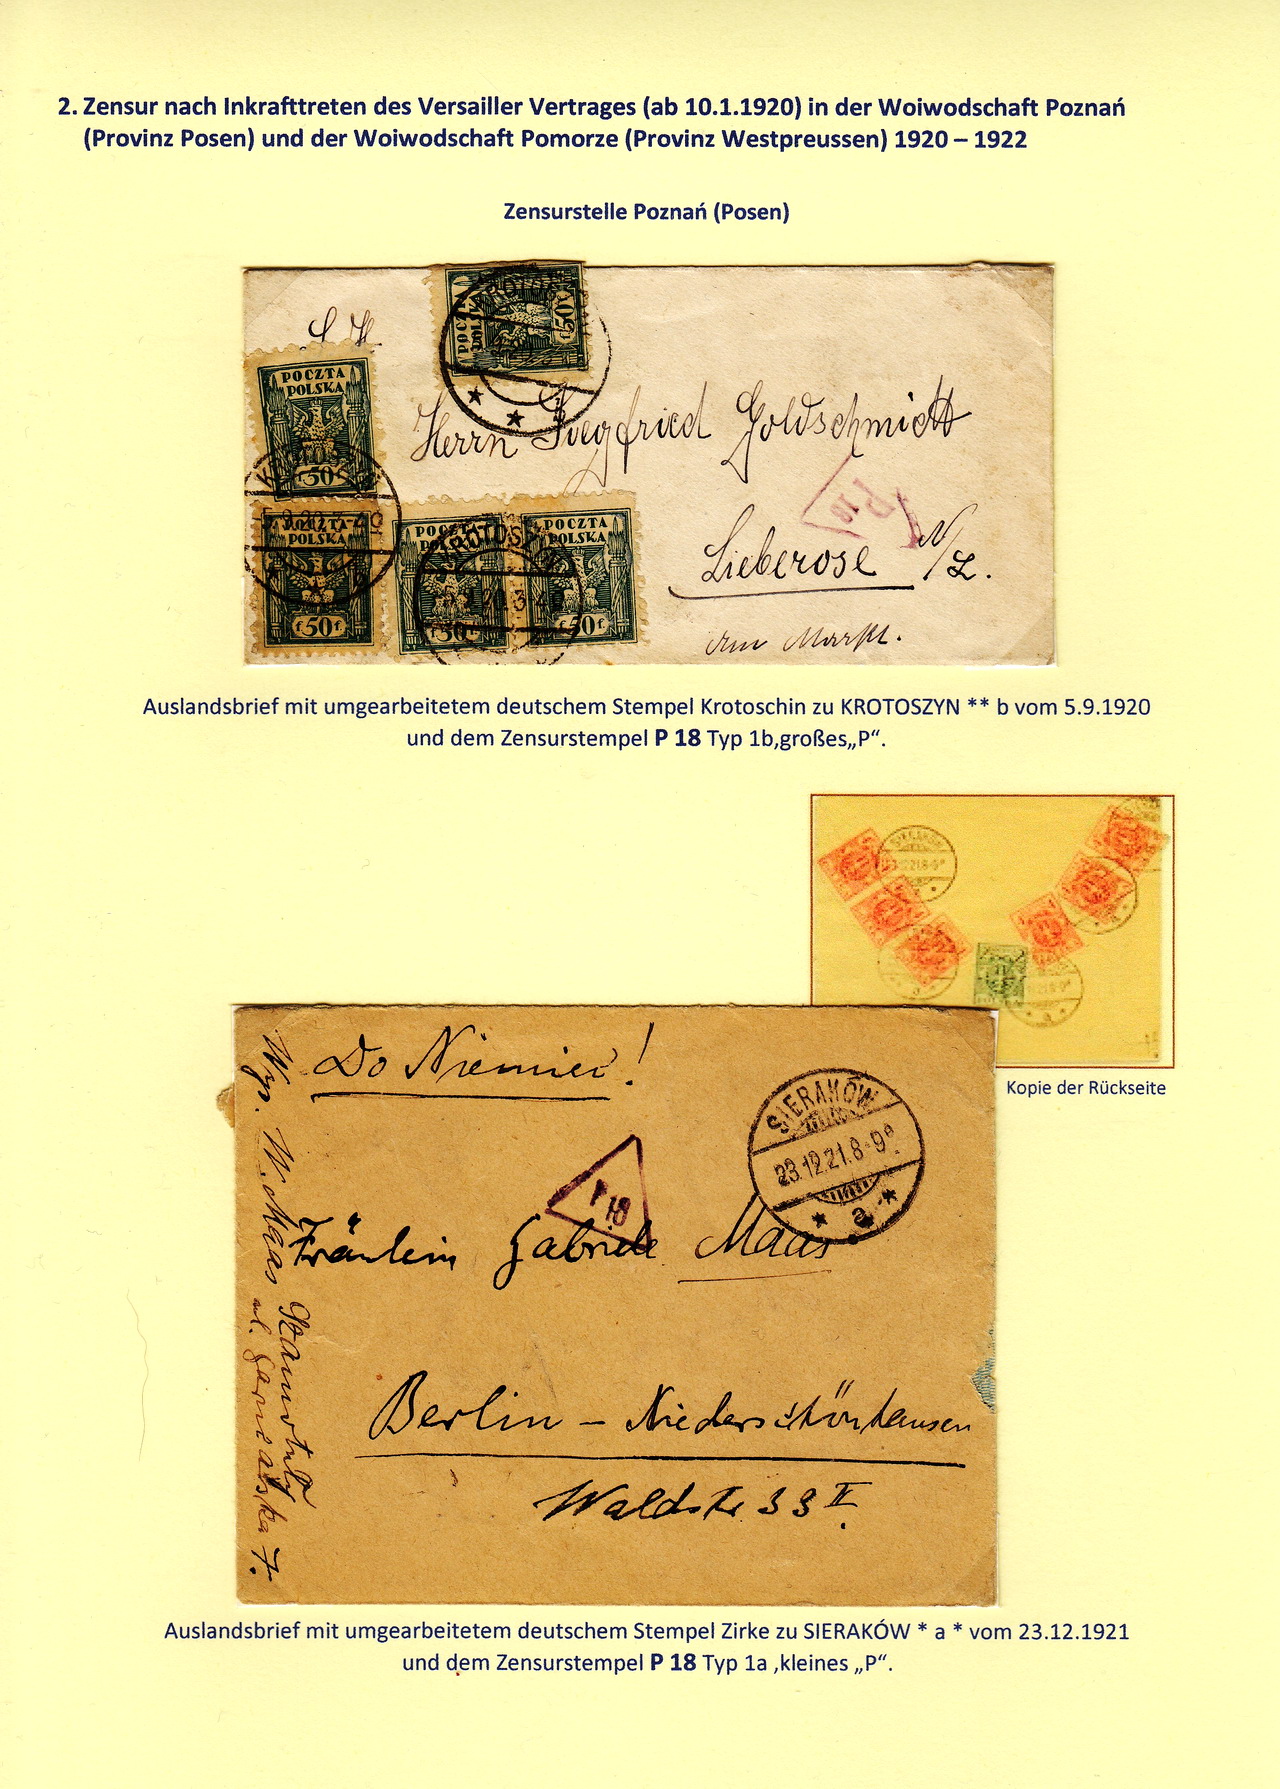 2. Zensur nach Inkrafttreten des Versailler Vertrages (ab 10.1.1920) in der Woiwodschaft Poznań
(Provinz Posen) und der Woiwodschaft Pomorze (Provinz Westpreussen) 1920 – 1922
Zensurstelle Poznań (Posen)
POCZTA POLSKA
50
POCZTA
POLSKA
f 50 f
Herrn Siegfried Goldschmidt
P 18
Lieberose N/L.
am Markt.
POCZTA
POLSKA
f 50 f
POCZTA
POLSKA
f 50 f
KROTOSZYN
POCZTA
POLSKA
50 f
Auslandsbrief mit umgearbeitetem deutschem Stempel Krotoschin zu KROTOSZYN ** b vom 5.9.1920
und dem Zensurstempel P 18 Typ 1b,großes„P“.
Kopie der Rückseite
Do Niemiec!
SIERAKÓW
23.12.21.8-9ᵃ
* a *
P 18
Fräulein Gabriele Maas.
Berlin – Niederschönhausen
Waldstr 33 II.
Wys. W. Maas
ul. Garncarska 7.
Auslandsbrief mit umgearbeitetem deutschem Stempel Zirke zu SIERAKÓW * a * vom 23.12.1921
und dem Zensurstempel P 18 Typ 1a ,kleines „P“.